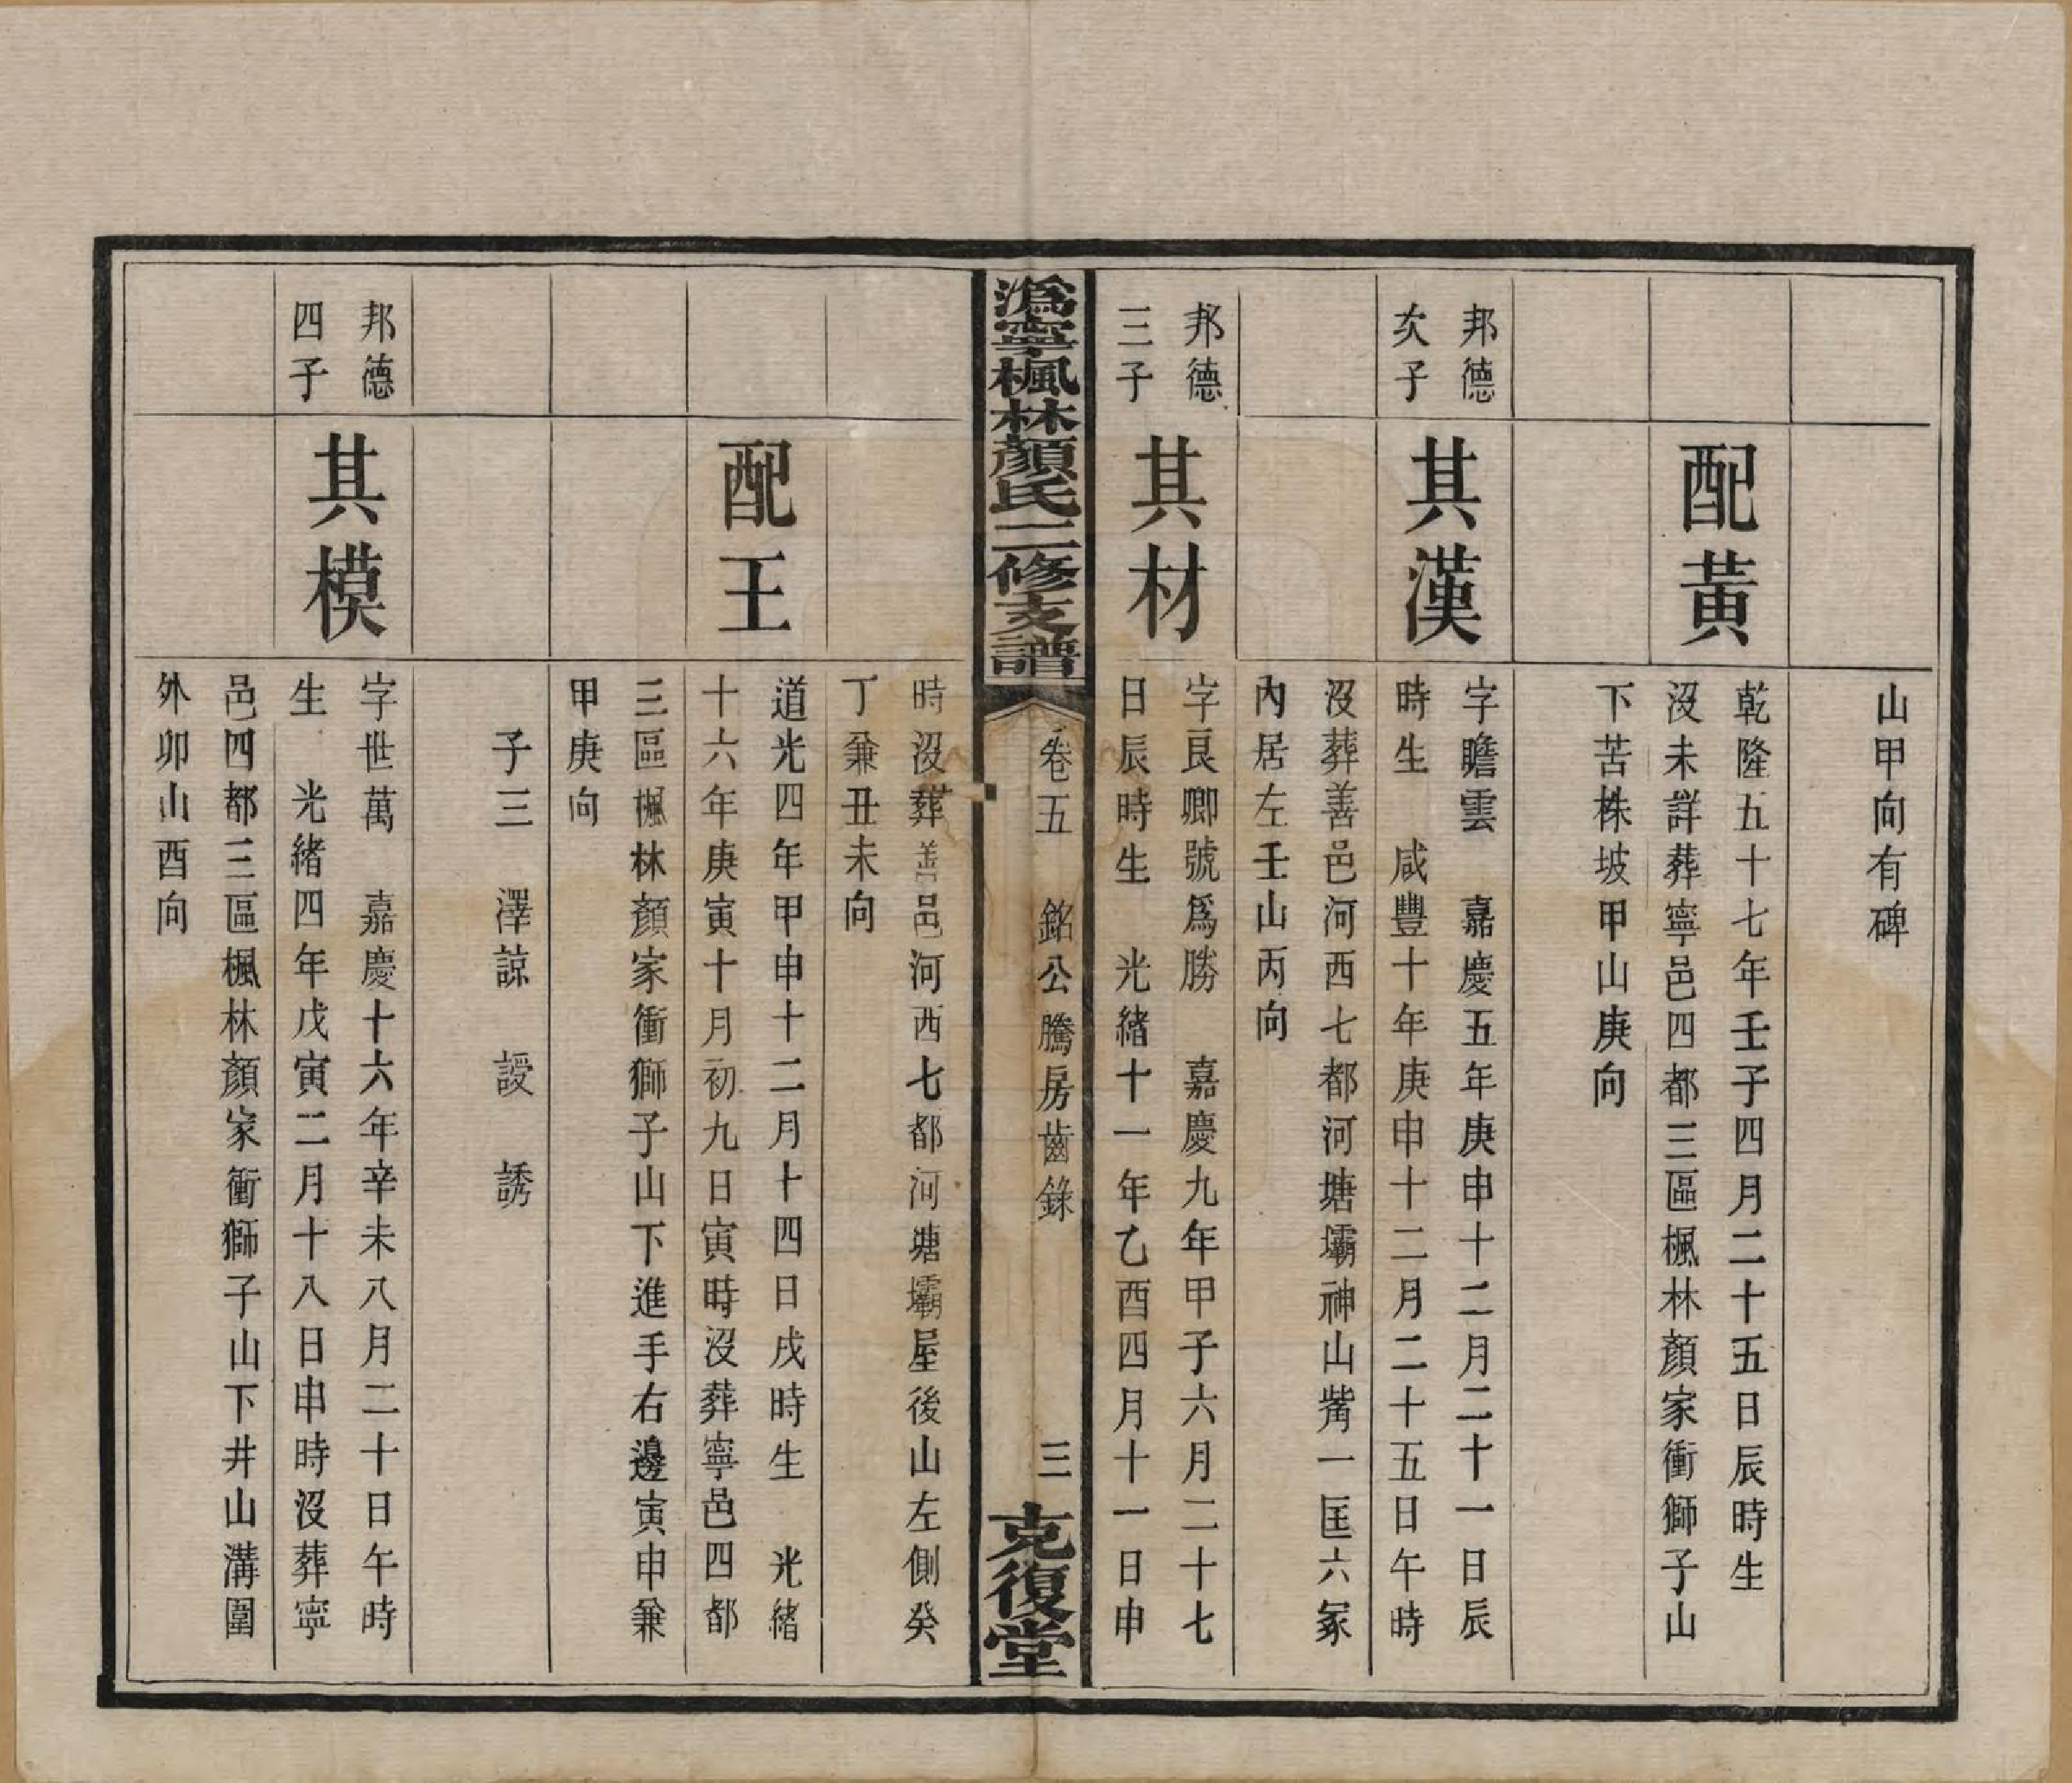 山甲向有碑
配黃
乾隆五十七年壬子四月二十五日辰時生
沒未詳葬寧邑四都三區楓林顏家衝獅子山
下苦株坡甲山庚向
邦德
次子
其漢
字瞻雲　嘉慶五年庚申十二月二十一日辰
時生　咸豐十年庚申十二月二十五日午時
沒葬善邑河西七都河塘壩神山嘴一匡六冢
內居左壬山丙向
邦德
三子
其材
字良卿號爲勝　嘉慶九年甲子六月二十七
日辰時生　光緒十一年乙酉四月十一日申
溈寧楓林顏氏二修支譜
卷五　銘公騰房齒錄
三
克復堂
時沒葬善邑河西七都河塘壩屋後山左側癸
丁兼丑未向
配王
道光四年甲申十二月十四日戌時生　光緒
十六年庚寅十月初九日寅時沒葬寧邑四都
三區楓林顏家衝獅子山下進手右邊寅申兼
甲庚向
子三　澤諒　諼　誘
邦德
四子
其模
字世萬　嘉慶十六年辛未八月二十日午時
生　光緒四年戊寅二月十八日申時沒葬寧
邑四都三區楓林顏家衝獅子山下井山溝圍
外卯山酉向